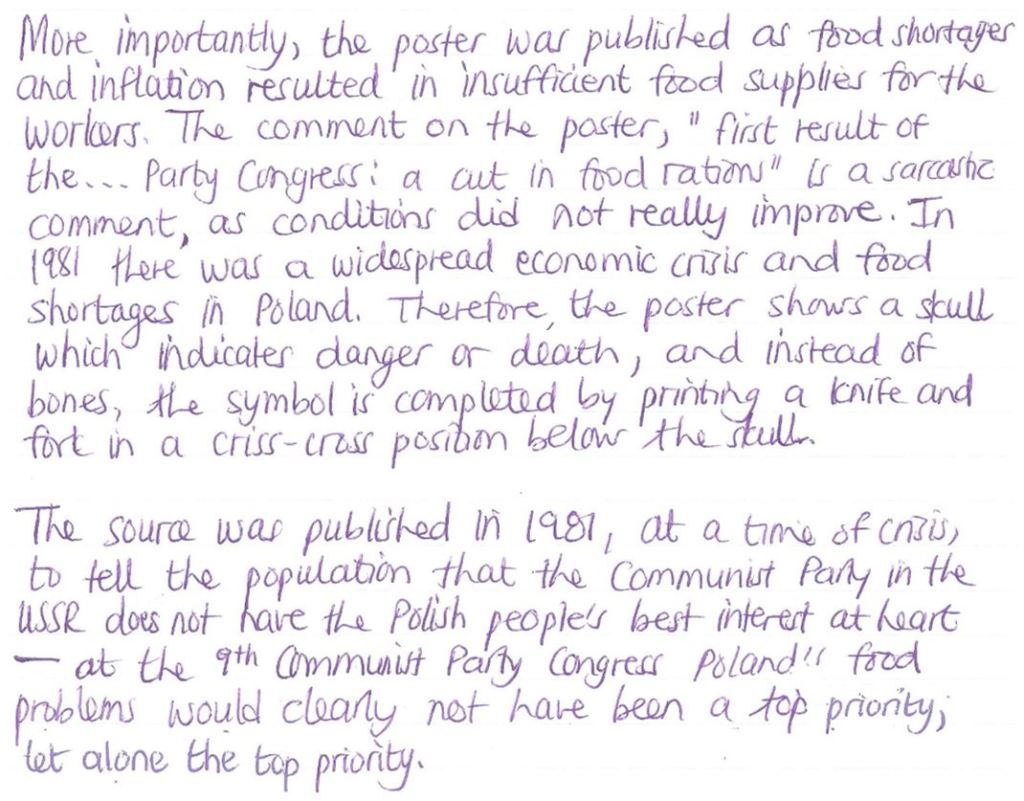 More importantly, the poster was published as food shortages
and inflation resulted in insufficient food supplies for the
workers. The comment on the poster, "first result of
the... Party Congress: a cut in food rations" is a sarcastic
comment, as conditions did not really improve. In
1981 there was a widespread economic crisis and food
shortages in Poland. Therefore, the poster shows a skull
which indicates danger or death, and instead of
bones, the symbol is completed by printing a knife and
fork in a criss-cross position below the skull.
The source was published in 1981, at a time of crisis,
to tell the population that the Communist Party in the
USSR does not have the Polish people's best interest at heart
— at the 9th Communist Party Congress Poland's food
problems would clearly not have been a top priority,
let alone the top priority.